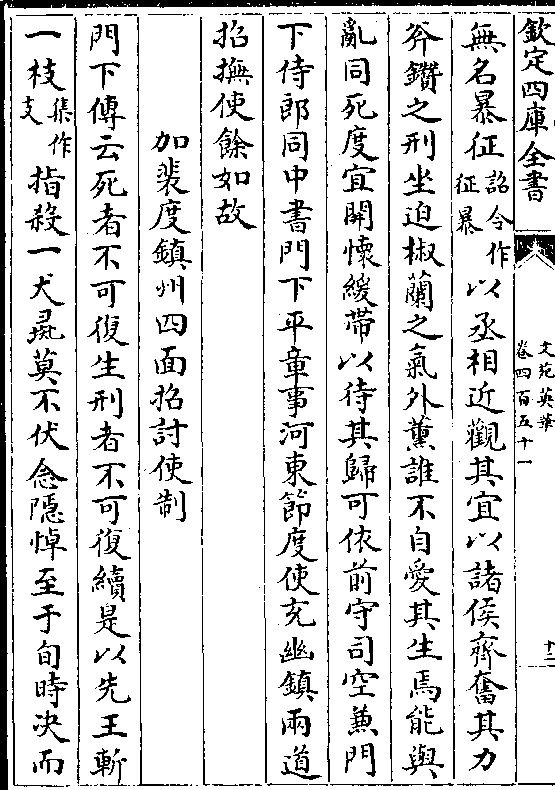 欽定四庫全書
文苑英華
卷四百五十一
十二
無名暴征詔令作征暴以丞相近觀其宜以諸侯齊奮其力
斧鑕之刑坐迫椒蘭之氣外薰誰不自愛其生焉能與
亂同死度宜開懷緩帶以待其歸可依前守司空兼門
下侍郎同中書門下平章事河東節度使充幽鎮兩道
招撫使餘如故
加裴度鎮州四面招討使制
門下傳云死者不可復生刑者不可復續是以先王斬
一枝集作支指殺一犬彘莫不伏念隱悼至于旬時決而